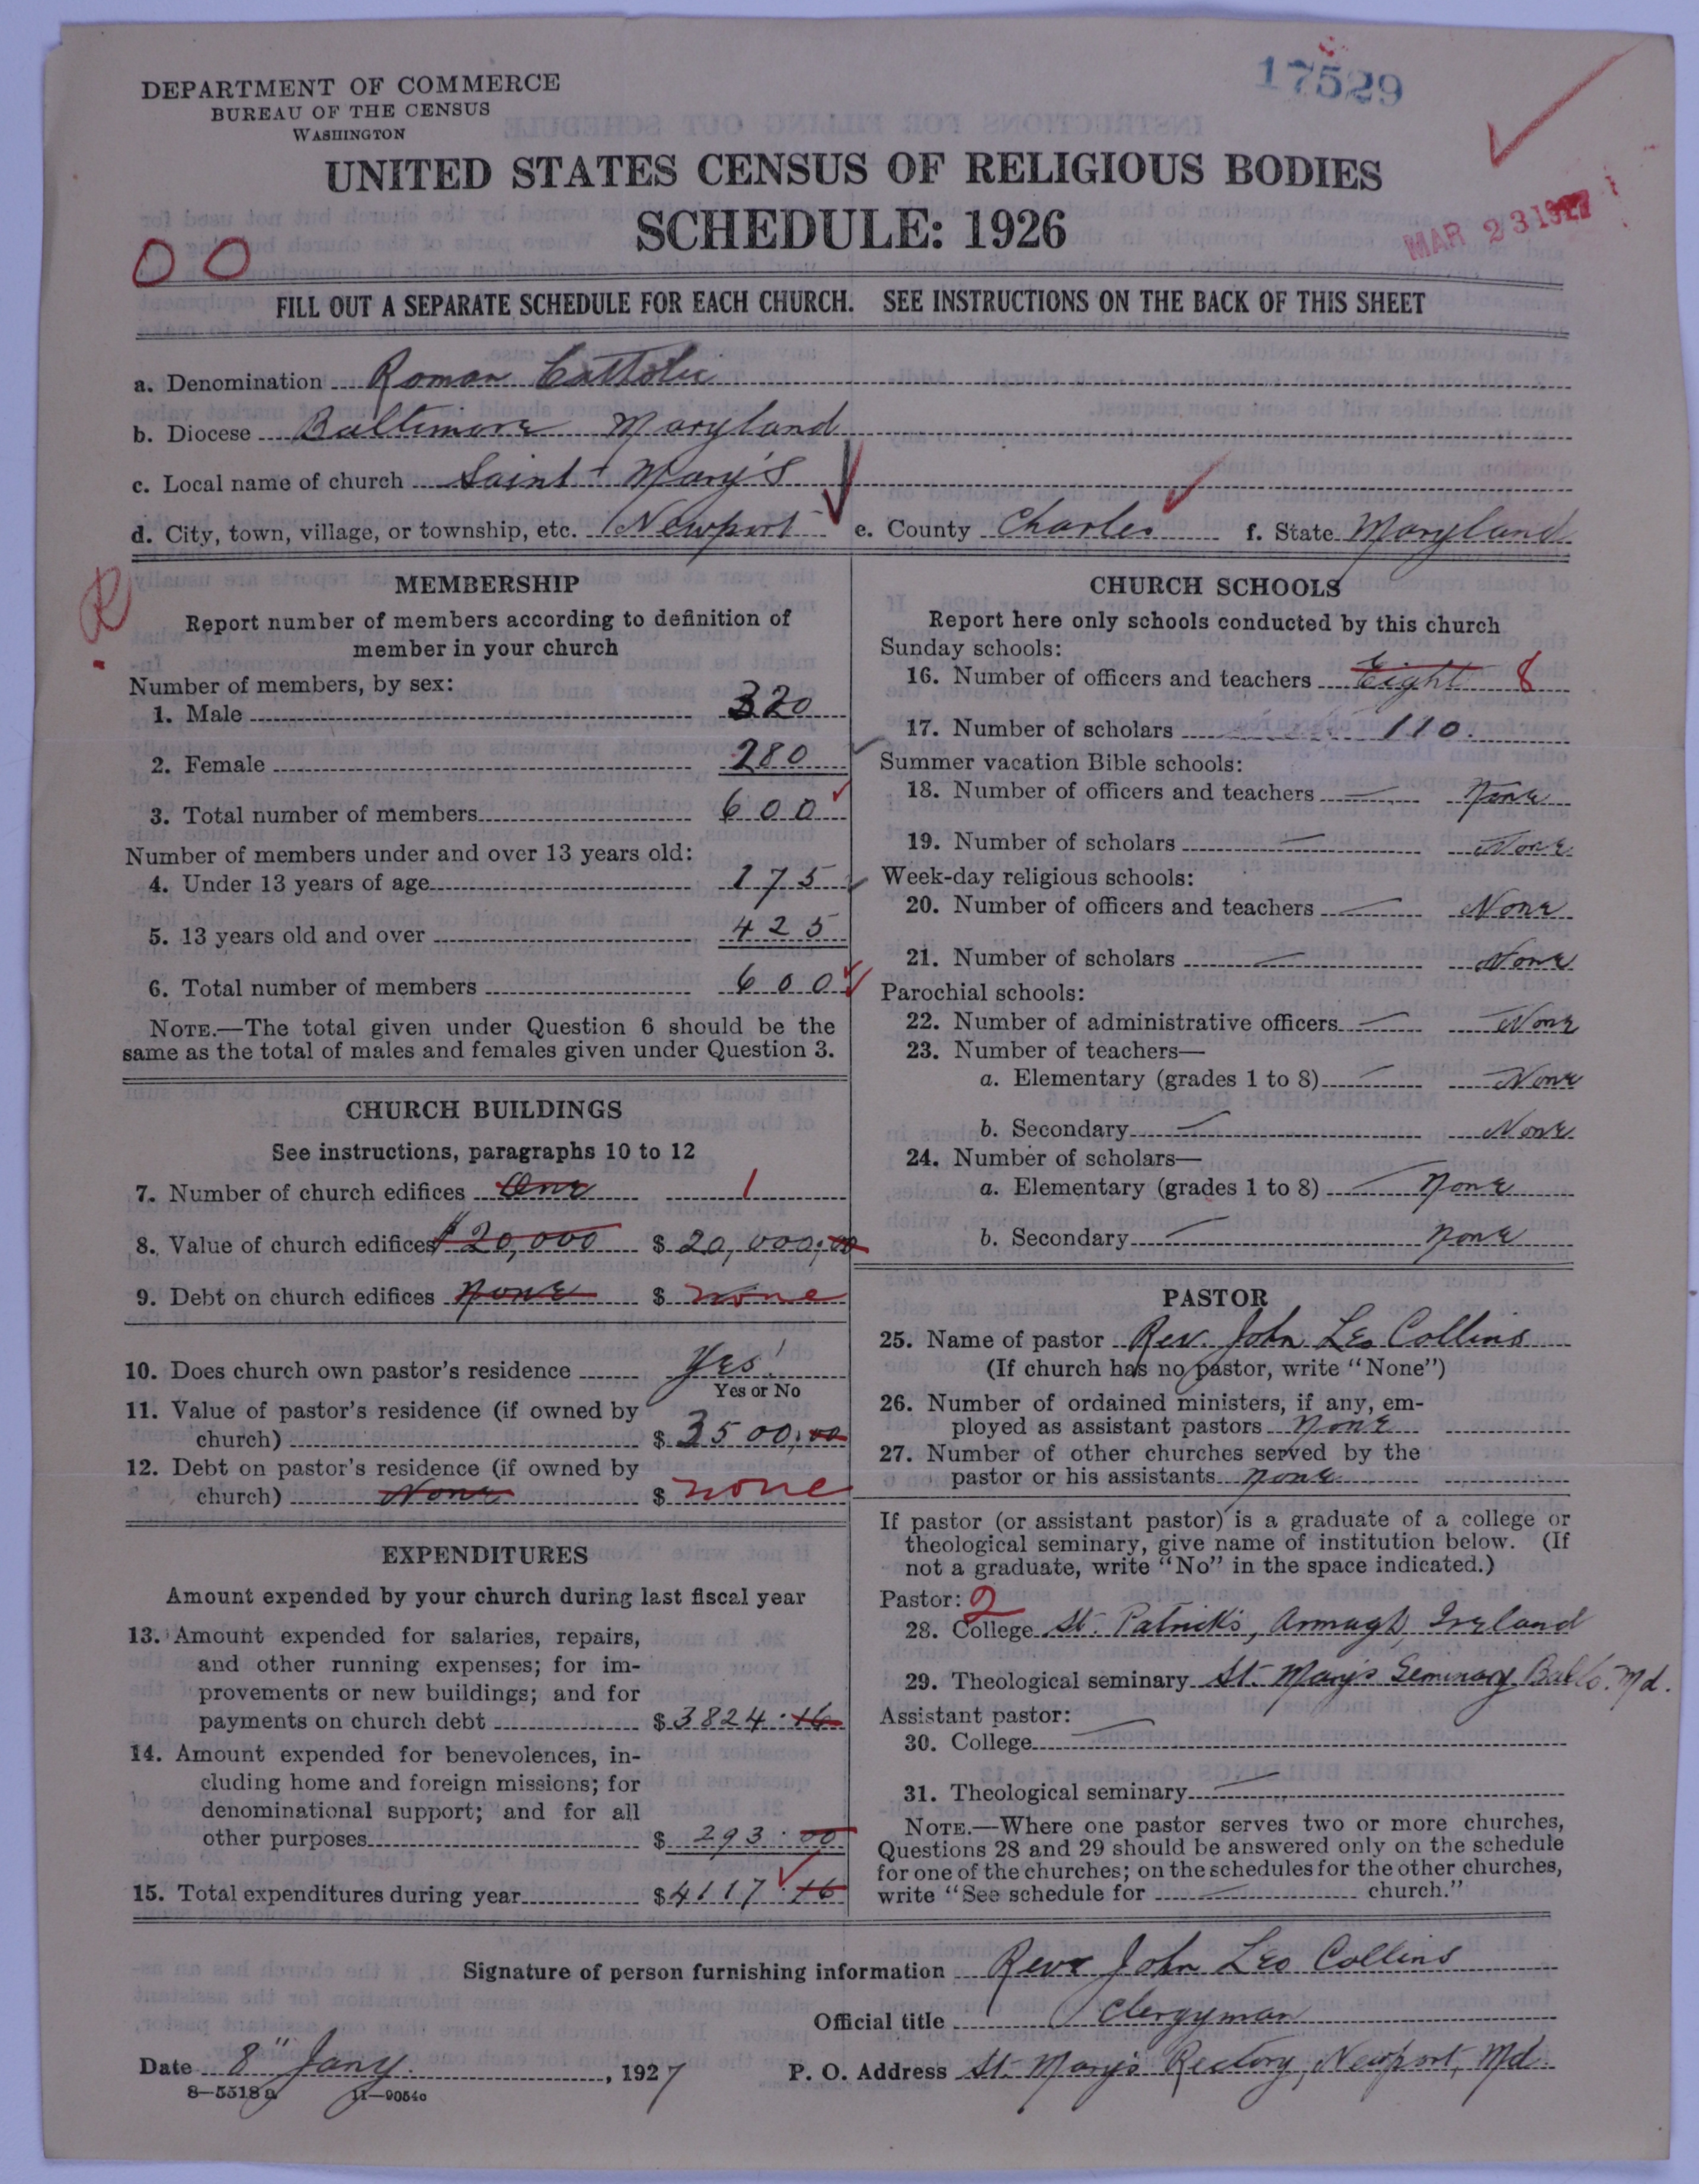 17529
DEPARTMENT OF COMMERCE
BUREAU OF THE CENSUS
WASHINGTON
UNITED STATES CENSUS OF RELIGIOUS BODIES
SCHEDULE: 1926
MAR 23 1927
00
FILL OUT A SEPARATE SCHEDULE FOR EACH CHURCH. SEE INSTRUCTIONS ON THE BACK OF THIS SHEET
a. Denomination Roman Catholic
b. Diocese Baltimore Maryland
c. Local name of church Saint Mary's
d. City, town, village, or township, etc. Newport e. County Charles f. State Maryland
MEMBERSHIP
Report number of members according to definition of
member in your church
Number of members, by sex:
1. Male 320
2. Female 280
3. Total number of members 600
Number of members under and over 13 years old:
4. Under 13 years of age 175
5. 13 years old and over 425
6. Total number of members 600
NOTE.—The total given under Question 6 should be the
same as the total of males and females given under Question 3.
CHURCH BUILDINGS
See instructions, paragraphs 10 to 12
7. Number of church edifices One 1
8. Value of church edifices $20,000 $ 20,000.00
9. Debt on church edifices None $ none
10. Does church own pastor's residence Yes
Yes or No
11. Value of pastor's residence (if owned by
church) $ 3500.00
12. Debt on pastor's residence (if owned by
church) None $ none
EXPENDITURES
Amount expended by your church during last fiscal year
13. Amount expended for salaries, repairs,
and other running expenses; for im-
provements or new buildings; and for
payments on church debt $ 3824.16
14. Amount expended for benevolences, in-
cluding home and foreign missions; for
denominational support; and for all
other purposes $ 293.00
15. Total expenditures during year $ 4117.16
CHURCH SCHOOLS
Report here only schools conducted by this church
Sunday schools:
16. Number of officers and teachers Eight 8
17. Number of scholars 110.
Summer vacation Bible schools:
18. Number of officers and teachers — None
19. Number of scholars — None
Week-day religious schools:
20. Number of officers and teachers — None
21. Number of scholars — None
Parochial schools:
22. Number of administrative officers — None
23. Number of teachers—
a. Elementary (grades 1 to 8) — None
b. Secondary — None
24. Number of scholars—
a. Elementary (grades 1 to 8) — None
b. Secondary — None
PASTOR
25. Name of pastor Rev. John Leo Collins
(If church has no pastor, write "None")
26. Number of ordained ministers, if any, em-
ployed as assistant pastors None
27. Number of other churches served by the
pastor or his assistants None
If pastor (or assistant pastor) is a graduate of a college or
theological seminary, give name of institution below. (If
not a graduate, write "No" in the space indicated.)
Pastor: 2
28. College St. Patrick's, Armagh, Ireland
29. Theological seminary St. Mary's Seminary Balto. Md.
Assistant pastor:
30. College —
31. Theological seminary —
NOTE.—Where one pastor serves two or more churches,
Questions 28 and 29 should be answered only on the schedule
for one of the churches; on the schedules for the other churches,
write "See schedule for — church."
Signature of person furnishing information Revd John Leo Collins
Official title Clergyman
Date 8" Jany. , 1927 P. O. Address St. Mary's Rectory, Newport, Md.
8—5518a 11—9054c